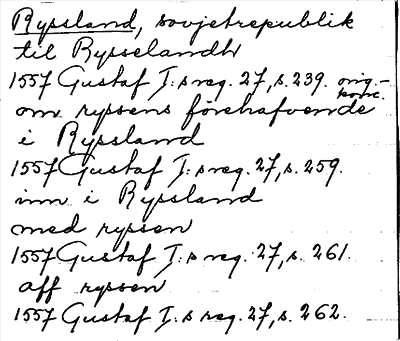 Ryssland, sovjetrepublik
til Rysselandh
1557 Gustaf I:s reg. 27, s. 239. orig.-konc.
om ryssens förehafvende
i Ryssland
1557 Gustaf I:s reg. 27, s. 259.
inn i Ryssland
med ryssen
1557 Gustaf I:s reg. 27, s. 261.
aff ryssen
1557 Gustaf I:s reg. 27, s. 262.